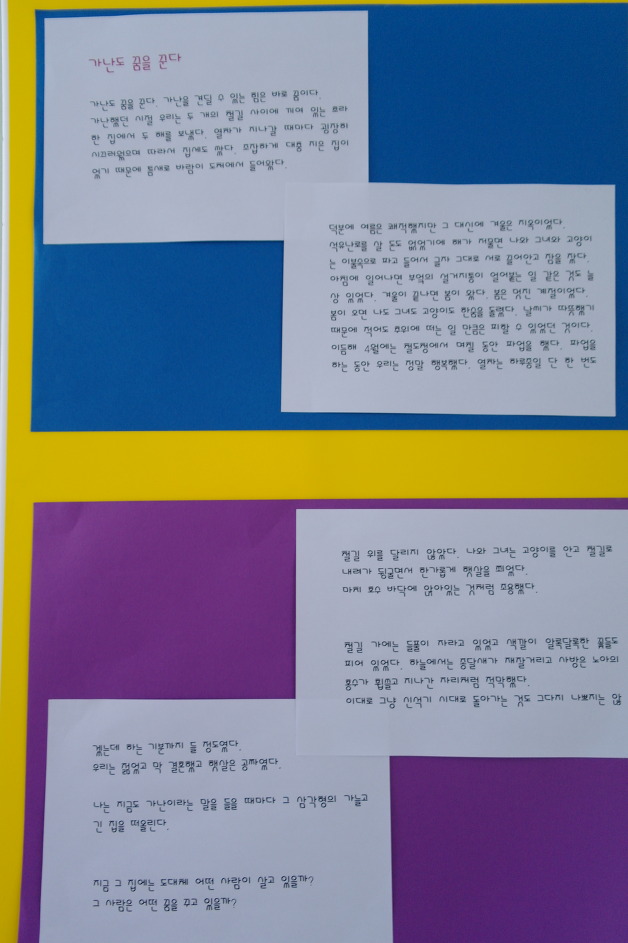 가난도 꿈을 꾼다
가난도 꿈을 꾼다. 가난을 견딜 수 있는 힘은 바로 꿈이다.
가난했던 시절 우리는 두 개의 철길 사이에 끼여 있는 호라
한 집에서 두 해를 보냈다. 열차가 지나갈 때마다 굉장히
시끄러웠으며 따라서 집세도 쌌다. 조잡하게 대충 지은 집이
었기 때문에 틈새로 바람이 도처에서 들어왔다.
덕분에 여름은 쾌적했지만 그 대신에 겨울은 지옥이었다.
석유난로를 살 돈도 없었기에 해가 저물면 나와 그녀와 고양이
는 이불속으로 파고 들어서 글자 그대로 서로 끌어안고 잠을 잤다.
아침에 일어나면 부엌의 설거지통이 얼어붙는 일 같은 것도 늘
상 있었다. 겨울이 끝나면 봄이 왔다. 봄은 멋진 계절이었다.
봄이 오면 나도 그녀도 고양이도 한숨을 돌렸다. 날씨가 따뜻했기
때문에 적어도 추위에 떠는 일 만큼은 피할 수 있었던 것이다.
이듬해 4월에는 철도청에서 며칠 동안 파업을 했다. 파업을
하는 동안 우리는 정말 행복했다. 열차는 하루종일 단 한 번도
철길 위를 달리지 않았다. 나와 그녀는 고양이를 안고 철길로
내려가 뒹굴면서 한가롭게 햇살을 쬐었다.
마치 호수 바닥에 앉아있는 것처럼 조용했다.
철길 가에는 들풀이 자라고 있었고 색깔이 알록달록한 꽃들도
피어 있었다. 하늘에서는 종달새가 재잘거리고 사방은 노아의
홍수가 휩쓸고 지나간 자리처럼 적막했다.
이대로 그냥 신석기 시대로 돌아가는 것도 그다지 나쁘지는 않
겠는데 하는 기분까지 들 정도였다.
우리는 젊었고 막 결혼했고 햇살은 공짜였다.
나는 지금도 가난이라는 말을 들을 때마다 그 삼각형의 가늘고
긴 집을 떠올린다.
지금 그 집에는 도대체 어떤 사람이 살고 있을까?
그 사람은 어떤 꿈을 꾸고 있을까?